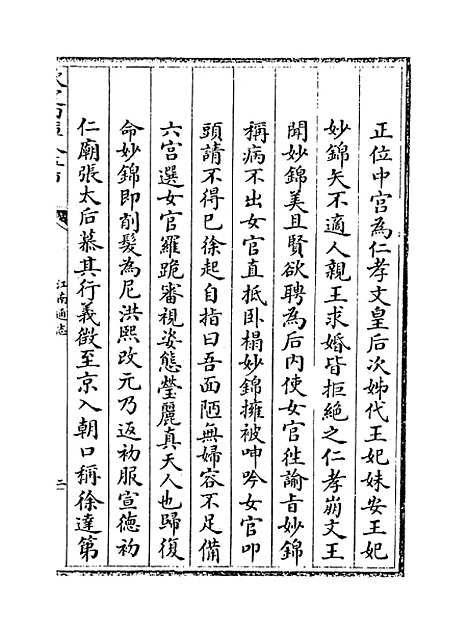 正位中宫為仁孝文皇后次姊代王妃妹安王妃
妙錦矢不適人親王求婚皆拒絶之仁孝崩文王
聞妙錦美且賢欲聘為后内使女官徃諭旨妙錦
稱病不出女官直抵卧榻妙錦擁被呻吟女官叩
頭請不得已徐起自指曰吾面陋無婦容不足備
六宫選女官羅跪審視姿態瑩麗真天人也歸復
命妙錦即削髮為尼洪熙改元乃返初服宣徳初
仁廟張太后慕其行義徵至京入朝口稱徐達第
江南通志
二